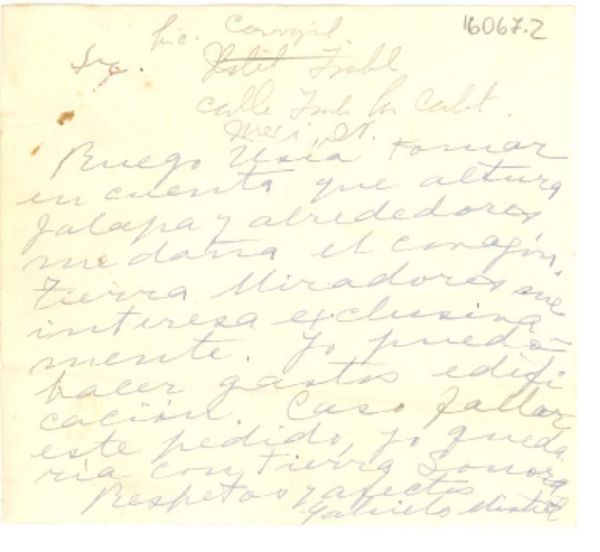 16067.2
Lic. Carvajal
Sra.
calle
Ruego Usía tomar
en cuenta que altura
Jalapa y alrededores
me daña el corazón.
Tierra Miradores me
interesa exclusiva
mente. Yo puedo
hacer gastos edifi
cación. Caso fallar
este pedido, yo queda
ría con Tierra Sonora
Respetos y afectos
Gabriela Mistral